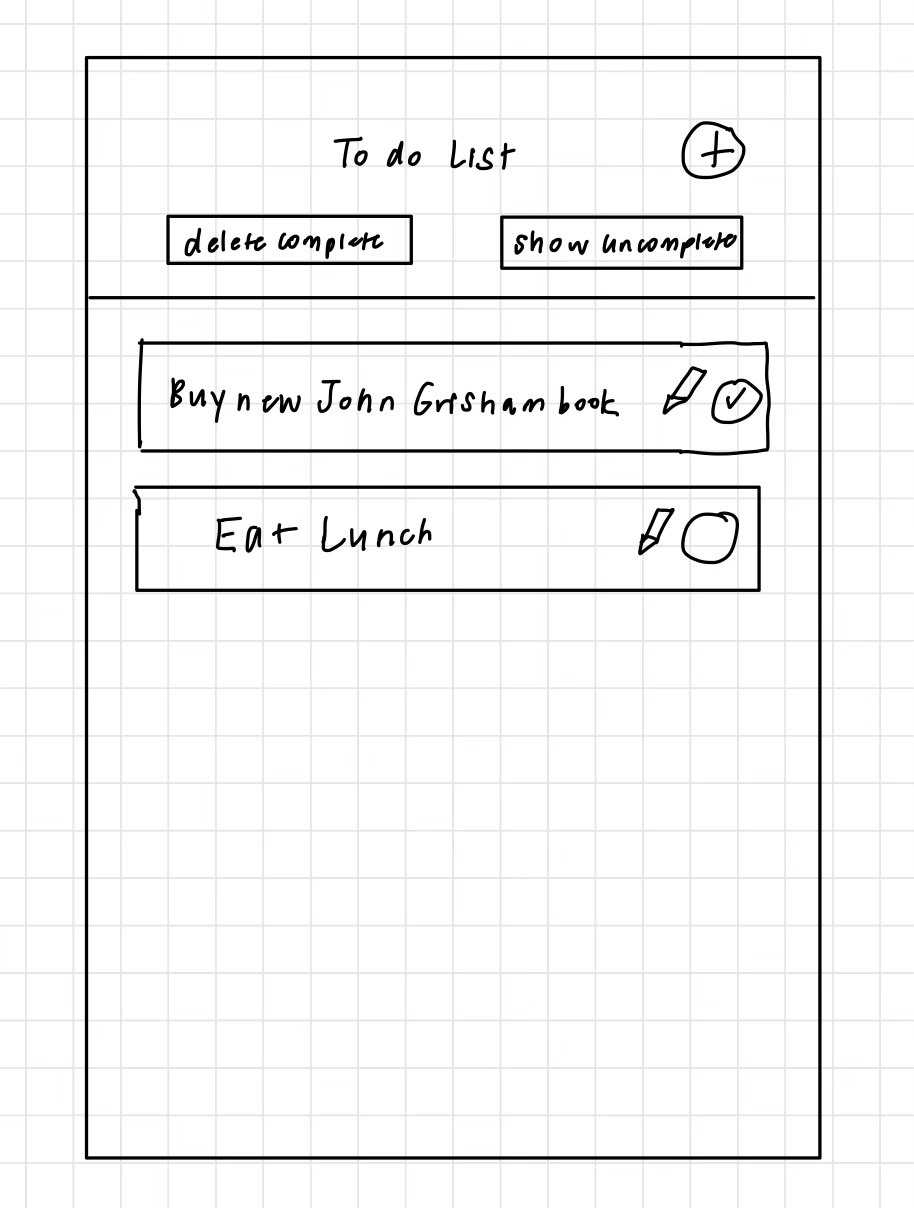 To do List
delete complete
show uncomplete
Buy new John Grisham book
Eat Lunch